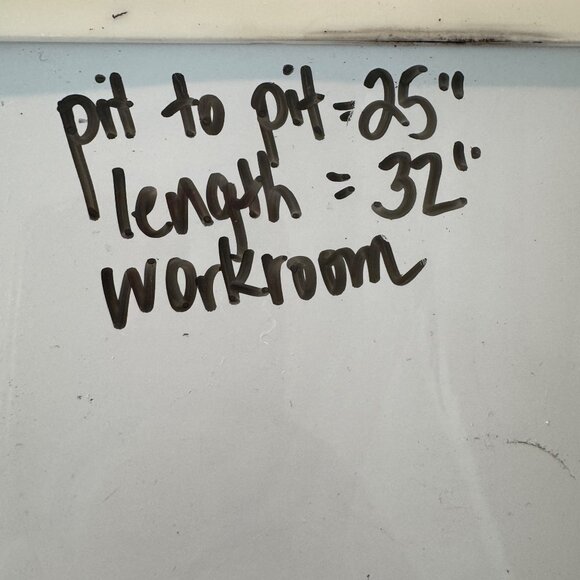 pit to pit = 25"
length = 32"
workroom